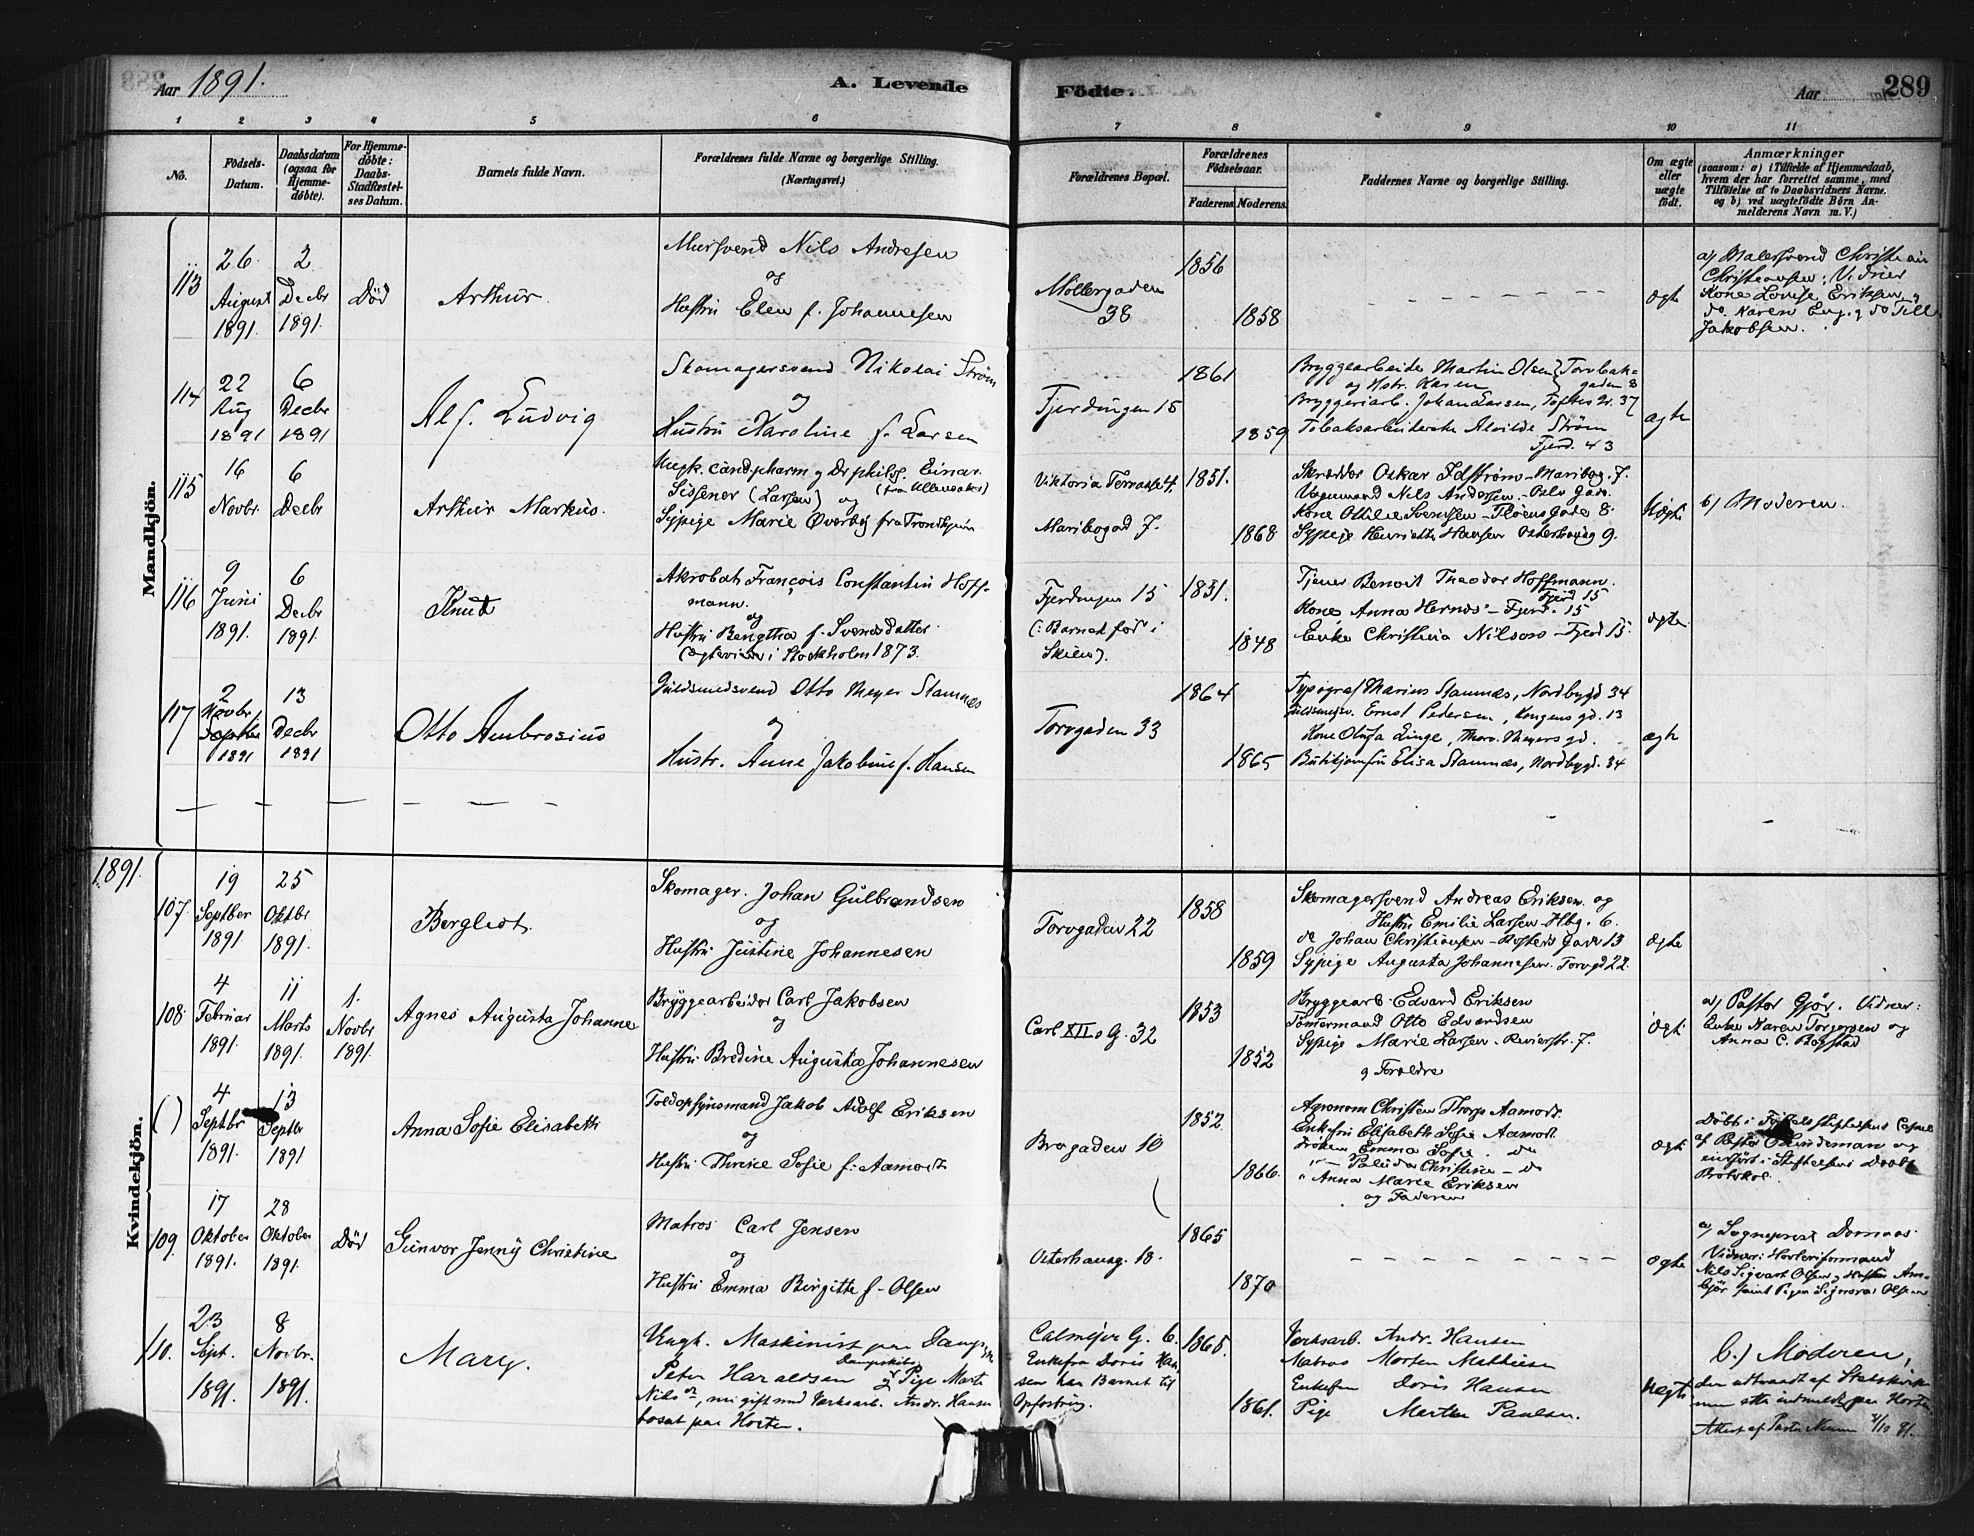 Aar 1891. A. Levende Födte. Aar 289
1 2 3 4 5 6 7 8 9 10 11
No.
Födsels-Datum.
Daabsdatum (ogsaa for Hjemme-döbte).
For Hjemme-döbte: Daabs-Stadfæstel-ses Datum.
Barnets fulde Navn.
Forældrenes fulde Navne og borgerlige Stilling.
(Næringsvei.)
Forældrenes Bopæl.
Forældrenes Födselsaar.
Faderens. Moderens.
Faddernes Navne og borgerlige Stilling.
Om ægte eller uægte födt.
Anmærkninger
(saasom: a) i Tilfælde af Hjemmedaab, hvem der har forrettet samme, med Tilföielse af to Daabsvidners Navne, og b) ved uægtefödte Börn An-melderens Navn m. V.)
Mandkjön.
113
26 August 1891.
2 Decbr 1891.
Död
Arthur.
Mursvend Nils Andresen
og
Hustru Elen f. Johannesen
Möllergaden 38
1856
1858
ægte
a) Malersvend Christian
Christiansen; Vidner
Kone Lovise Eriksen
Jakobsen.
114
22 Aug 1891
6 Decbr 1891
Alf Ludvig
Skomagersvend Nikolai Ström
og
Hustru Karoline f. Larsen
Fjerdingen 15
1861
1859
Bryggearbeider Martin Olsen
og Hstr. Karen
Bryggeriarb. Johan Larsen, Toftes G. 37
Tobaksarbeiderske Alvilde Ström
Fjerd. 43
ægte
115
16 Novbr.
6 Decbr
Arthur Markus.
Ungk. cand. pharm og Dr philos. Einar
Sissener (Larsen) og (fra Ullensaker)
Sypige Marie Overby fra Trondhjem
Viktoria Terrasse
Maribogad 7.
1851.
1868
Skrædder Oskar Edström - Maribog. 7.
Vognmand Nils Andersen - Oslo Gade.
Kone Othilie Svendsen - Thöens Gade 8.
Sypige Henriette Hansen Osterhausg 9.
Uægte
b) Moderen.
116
9 Juni 1891.
6 Decbr 1891.
Knut
Akrobat François Constantin Hoff-
mann.
og
Hustru Bengtha f. Svensdatter
(ægteviet i Stockholm 1873.
Fjerdingen 15
(: Barnet född i
Skien).
1831.
1848
Tjener Benoit Theodor Hoffmann.
Fjerd 15
Kone Anna Hernes - Fjerd. 15
Enke Christina Nilsson - Fjerd 15.
ægte
117
2 Novbr. 1891
13 Decbr 1891
Otto Ambrosius
Guldsmedsvend Otto Meyer Stamnæs
og
Hustr. Anne Jakobine f. Hansen
Torvgaden 33
1864
1865
Typograf Marius Stamnæs, Nordbygd 34
Guldsmedsv. Ernst Pedersen, Kongens gd. 13
Kone Olufa Linge, Thorv. Meyers gd.
Butikjomfru Elisa Stamnæs, Nordbygd. 34
ægte
1891.
Kvindekjön.
107.
19 Septber 1891
25 Oktbr 1891.
Bergliot.
Skomager. Johan Gulbrandsen
og
Hustru Justine Johannesen
Torvgaden 22
1858
1859
Skomagersvend Andreas Eriksen og
Hustru Emilie Larsen - Hbg. 6.
do Johan Christiansen - Gade 13
Sypige Augusta Johannesen. Torvgd 22.
ægte
108
4 Februar 1891.
11 Marts 1891.
1. Novbr 1891.
Agnes Augusta Johanne
Bryggearbeider Carl Jakobsen
og
Hustru Bredine Augusta Johannesen
Carl XIIs G. 32
1853
1852
Bryggearb. Edvard Eriksen
Tömmermand Otto Edvardsen
Sypige Marie Larsen - Revierstr. 7.
og Forældre
ægte
a) Pastor Gjör. Vidner:
Enke Karen Torgersen og
Anna C. Bogstad
( )
4 Septbr 1891.
13 Septbr 1891
Anna Sofie Elisabeth
Toldopsynsmand Jakob Adolf Eriksen
og
Hustru Thrine Sofie f. Aamodt
Brogaden 10
1852
1866.
Agronom Christen Thorp Aamodt.
Enkefru Elisabeth Sofie Aamodt.
Fröken Emma Sofie do
" - Paula Christine - do
" Anna Marie Eriksen
og Faderen
ægte
Döbt i Födselsstiftelsens Capel
af Pastor Lindeman og
indfört i Stiftelsens Daabs
Protokol.
109.
17 Oktober 1891.
28 Oktober 1891.
Död
Gunvor Jenny Christine
Matros Carl Jensen
og
Hustru Emma Birgitte f. Olsen
Osterhausg. 18.
1865
1870
ægte
a) Sogneprest
Vidner:
Nils Sigvart Olsen
samt Pigen Signora Olsen
110.
23 Sept. 1891.
8 Novbr. 1891.
Mary.
Ungk. Maskinist paa Damp-
Peter Haraldsen og Pige Marte
Nilsdr, nu gift med Værksarb. Andr. Hansen
bosat paa Horten.
Calmeyer G. 6.
Enkefru Doris Han
sen har Barnet til
Opfostring.
1865.
1861.
Værksarb. Andr. Hansen
Matros Morten Mathisen
Enkefru Doris Hansen
Pige Marten Paulsen.
Uægte
b.) Moderen,
der udtraadt af Statskirken
men atter indmeldt paa Horten.
Attest af Pastor 3/10 91.